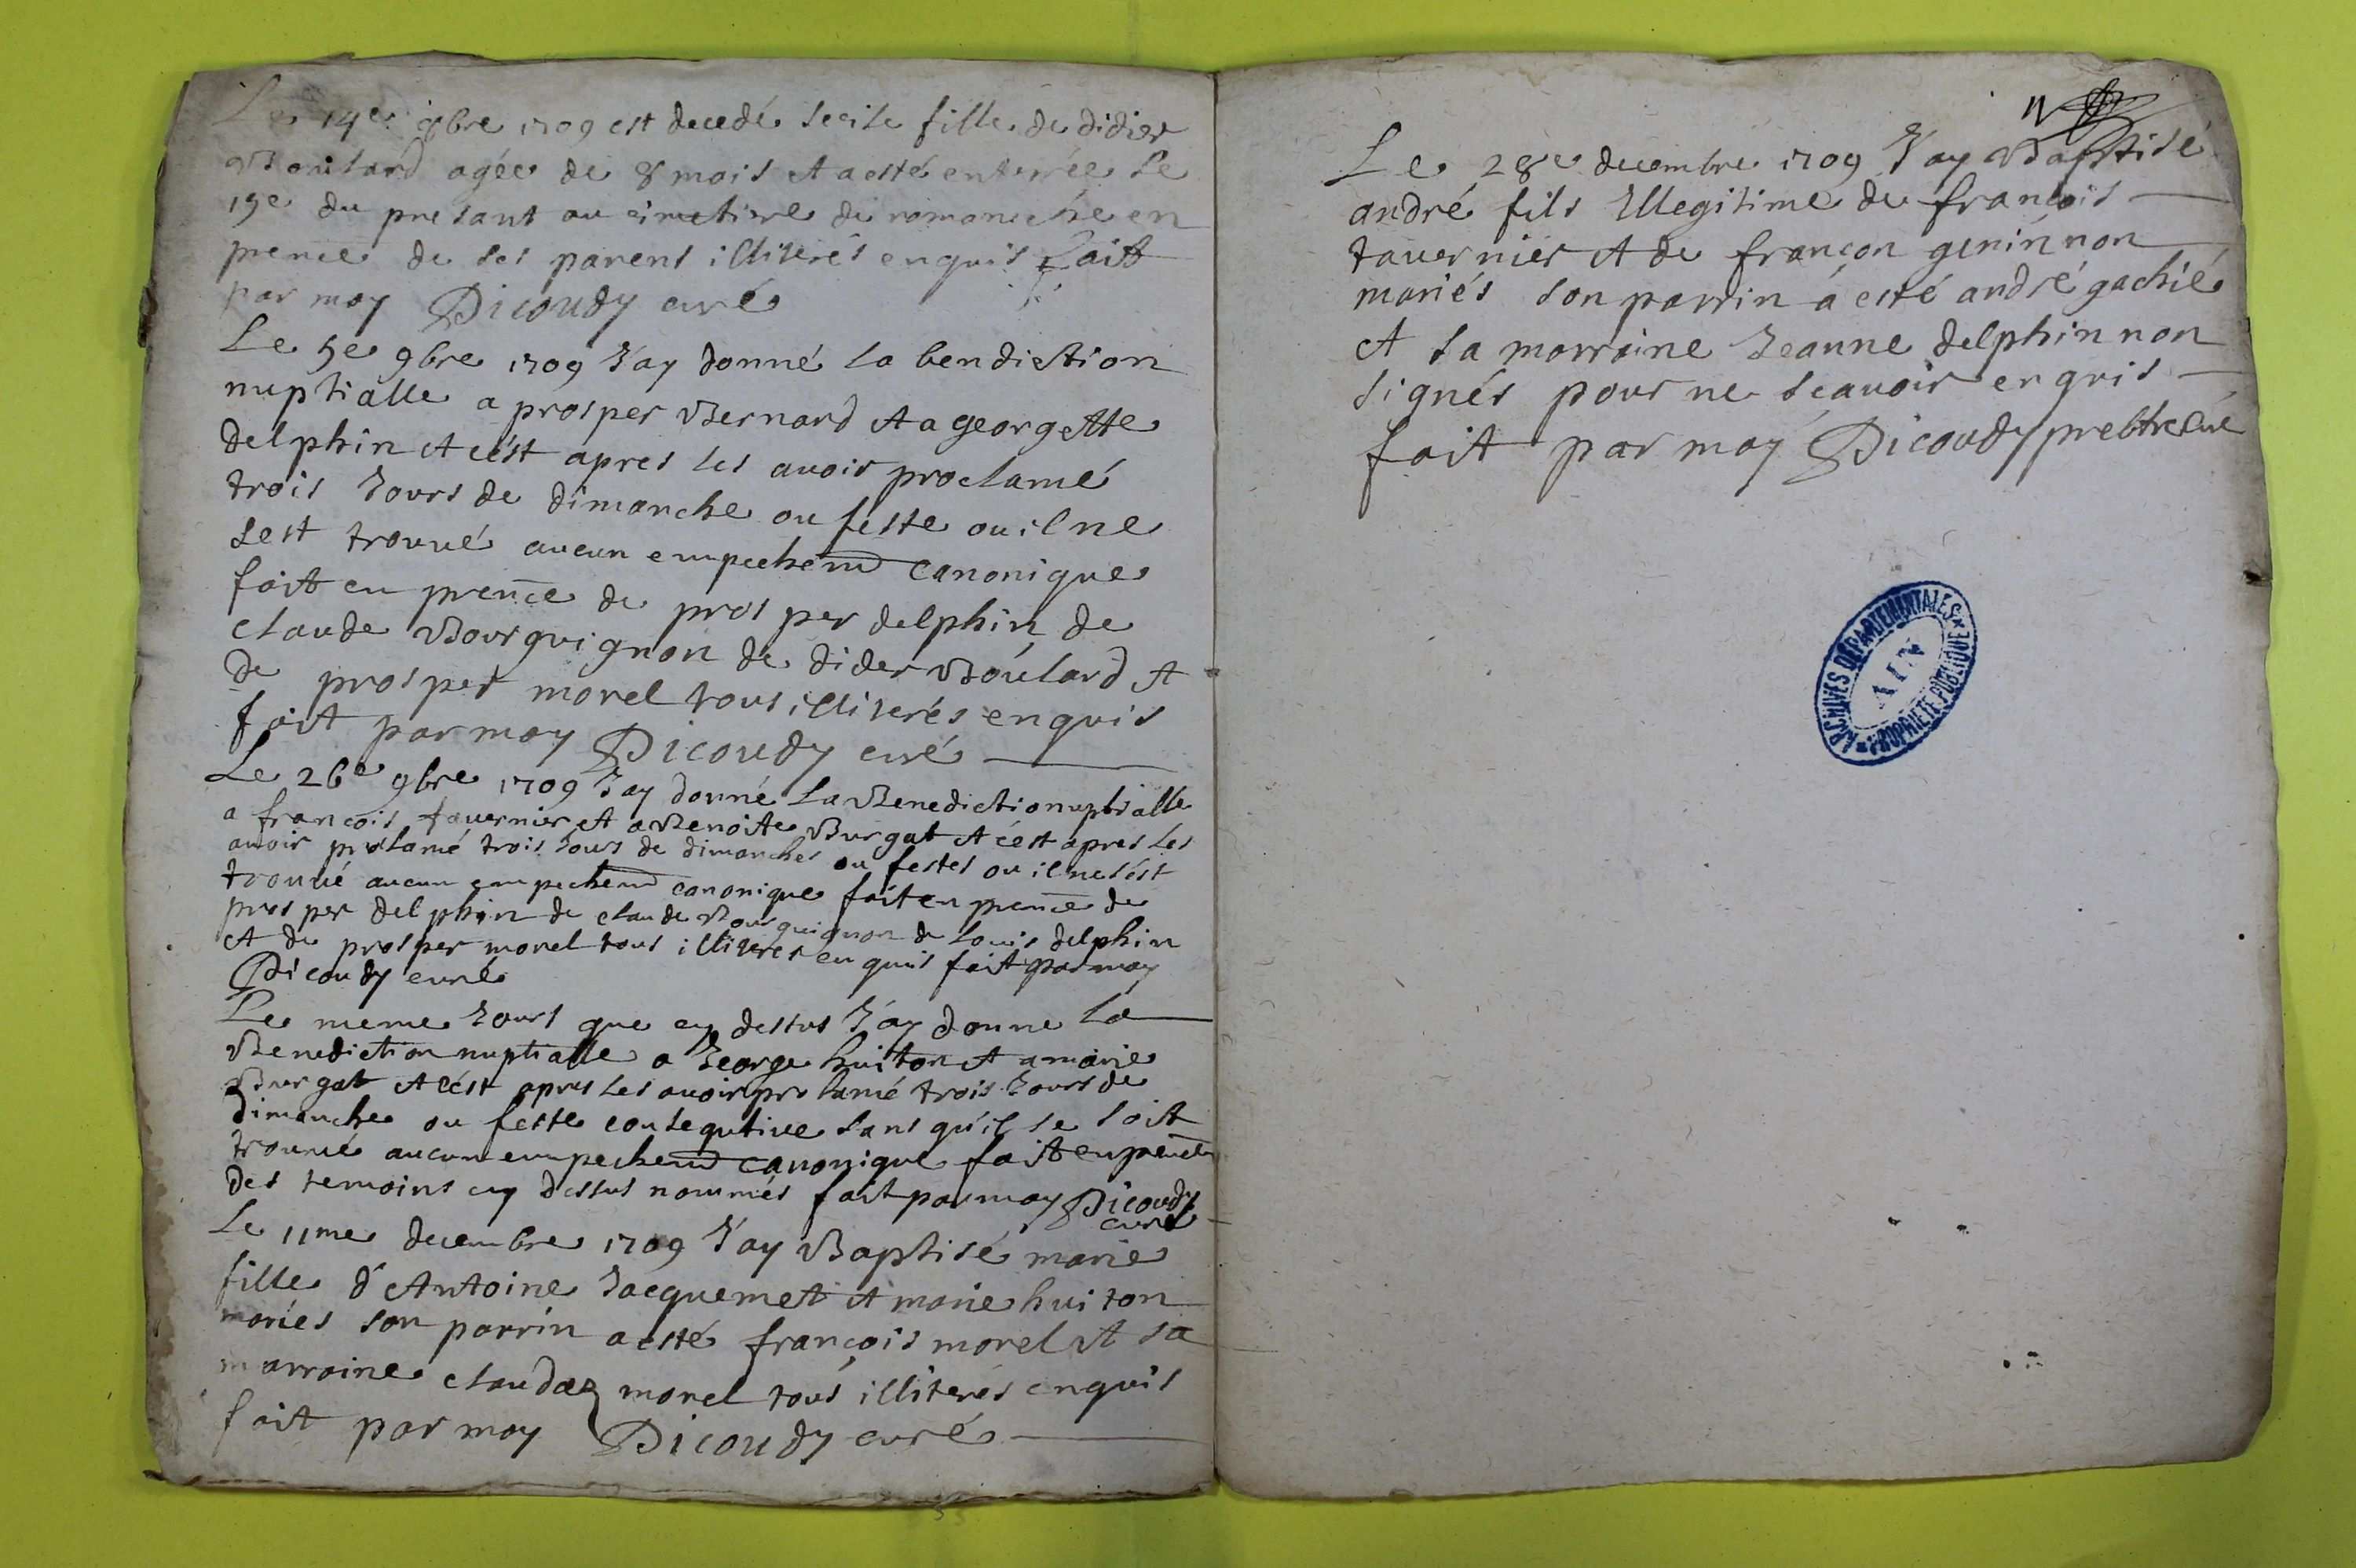 Le 14e 8bre 1709 est decedé secile fille de didier
Boulard agée de 8 mois et a esté enterrée le
15e du presant au cimetiere de romaneche en
prence de ses parens illiterés enquis fait
par moy Dicoudy curé
Le 5e 9bre 1709 J'ay donné la bendiction
nuptialle a prosper Bernard et a georgette
delphin et c'est apres les avoir proclamé
trois Jours de dimanche ou feste ou il ne
sest trouvé aucun empechemt canonique
fait en prence de prosper delphin de
claude Bourguignon de dider Boulard et
de prosper morel tous illiterés enquis
fait par moy Dicoudy curé
Le 26e 9bre 1709 J'ay donné la Benediction uptialle
a francois tavernier et a Benoite Burgat et c'est apres les
avoir proclamé trois Jours de dimanches ou festes ou il ne s'est
trouvé aucun empechemt canonique fait en prence de
prosper delphin de claude Bourguignon de louis delphin
et de prosper morel tous illiteres enquis fait par moy
Dicoudy curé
Le meme Jours que cy dessus J'ay donne la
Benediction nuptialle a George huiton et a marie
Burgat et c'est apres les avoir proclamé trois Jours de
dimanche ou feste consequtive sans qu'il se soit
trouvé aucun empechemt canonique fait en prence
des temoins cy dessus nommés fait par moy Dicoudy
curé
Le 11me decembre 1709 J'ay Baptisé marie
fille d'Antoine Jacquemet et marie huiton
mariés son parrin a esté françois morel et sa
marraine claudaz morel tous illiterés enquis
fait par moy Dicoudy curé
Le 28e decembre 1709 J'ay Baptisé
andré fils Illegitime de francois
tavernier et de françon genin non
mariés son parrin a esté andré gachié
et sa marraine Jeanne delphin non
signés pour ne scavoir enquis
fait par moy Dicoudy prebtre curé
ARCHIVES DÉPARTEMENTALES
AIN
PROPRIÉTÉ PUBLIQUE